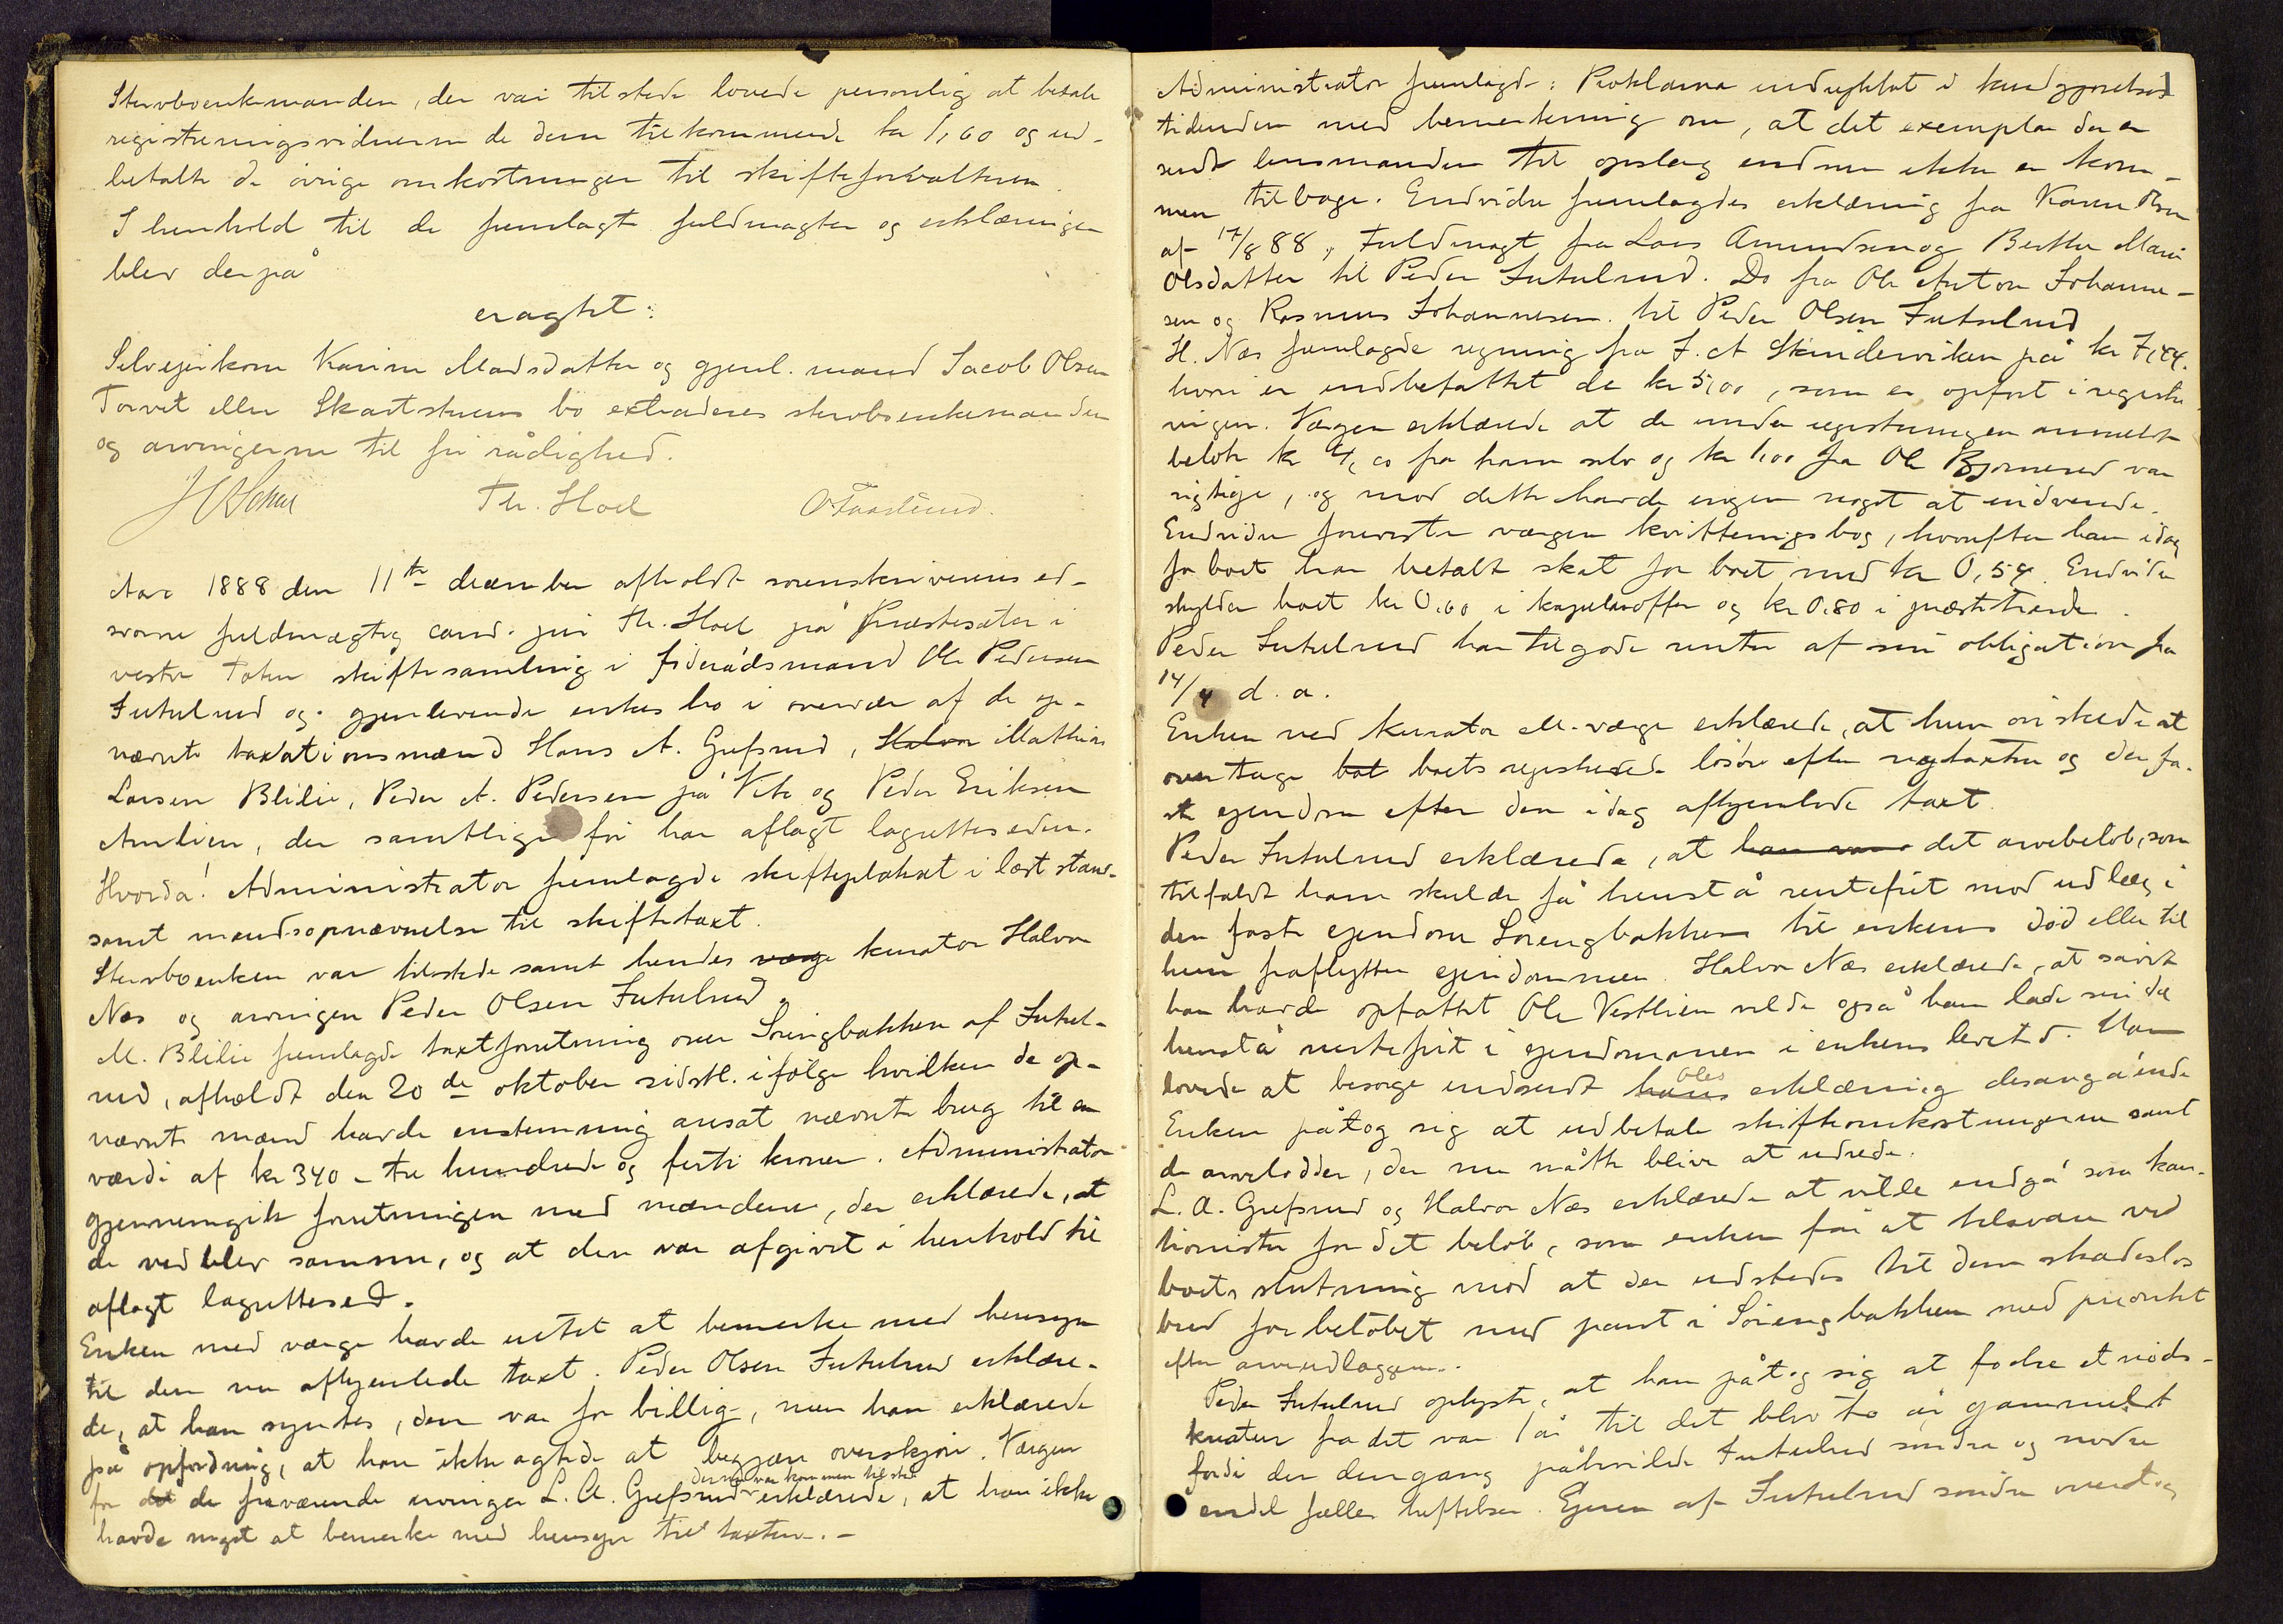 Stervboenkemanden, der var tilstede lovede personlig at betale
registreringsvidnerne de dem tilkommende kr 1,60 og ud-
betalte de övrige omkostninger til skifteforvalteren.
I henhold til de fremlagte fuldmagter og erklæringer
blev derpå
eragtet:
Selveierkone Karine Madsdatter og gjenl. mand Jacob Olsen
Torvet eller Skartstuens bo extraderes stervboenkemanden
og arvingerne til fri rådighed.
Th. Hoel O Faarlund.
Aar 1888 den 11te december afholdt sorenskriverens ed-
svorne fuldmægtig cand. jur Th. Hoel på Præstesæter i
vestre Toten skiftesamling i föderådsmand Ole Pedersen
Jutulrud og gjenlevende enkes bo i overvær af de op-
nævnte taxationsmænd Hans A. Grefsrud, Halvor Mathias
Larsen Blilie, Peder A. Pedersen på Vete og Peder Eriksen
Amlien, der samtlige för har aflagt lagretteseden.
Hvorda! Administrator fremlagde skifteplakat i læst stand
samt mændsopnævnelse til skiftetaxt.
Stervboenken var tilstede samt hendes værge kurator Halvor
Næs og arvingen Peder Olsen Jutulrud.
M. Blilie fremlagde taxtforretning over Söringbakken af Jutul-
rud, afholdt den 20de oktober sidstl. ifölge hvilken de op-
nævnte mænd havde enstemmig ansat nævnte brug til en
værdi af kr 340 - tre hundrede og förti kroner. Administrator
gjennemgik forretningen med mændene, der erklærede, at
de vedblev samme, og at den var afgivet i henhold til
aflagt lagrettesed.
Enken med værge havde intet at bemerke med hensyn
til den nu afhjemlede taxt. Peder Olsen Jutulrud erklære-
de, at han syntes, den var for billig, men han erklærede
på opfordring, at han ikke agtede at begjære overskjön. Værgen
der nu var kommen tilstede
for det de fraværende arvinger L. A. Grefsrud erklærede, at han ikke
havde noget at bemerke med hensyn til taxten. -
Administrator fremlagde: Proklama indrykket i kundgjörelses
tidenden med bemerkning om, at det exemplar der er
sendt lensmanden til opslag endnu ikke er kom-
men tilbage. Endvidere fremlagdes erklæring fra Karen
af 17/8 88, Fuldmagt fra Lars Amundsen og Berthe Marie
Olsdatter til Peder Jutulrud. Do fra Ole Anton Johanne-
sen og Rasmus Johannesen til Peder Olsen Jutulrud
H. Næs fremlagde regning fra J. A Skinderviken på kr 7,44.
hvori er indbefattet de kr 5,00, som er opfört i registre
ringen. Værgen erklærede at de under registreringen anmeldte
belöb kr 4,00 fra ham selv og kr 1,00 fra Ole Bjornerud var
rigtige, og mod dette havde ingen noget at indvende.
Endvidere foreviste værgen kvitteringsbog, hvorefter han idag
for boet har betalt skat for boet med kr 0,54. Endvidere
skylder boet kr 0,60 i kapelanoffer og kr 0,80 i præstetiende.
Peder Jutulrud har tilgode renter af sin obligation fra
14/4 d. a.
Enken ved kurator ell. værge erklærede, at hun önskede at
overtage bot boets registrerede lösöre efter regtaxten og den fa-
ste ejendom efter den idag afhjemlede taxt.
Peder Jutulrud erklærede, at han var det arvebelöb, som
tilfaldt ham skulde få henstå rentefrit mod udlæg i
den faste ejendom Söringbakken til enkens död eller til
hun fraflytter ejendommen. Halvor Næs erklærede, at såvidt
han havde opfattet Ole Vestlien vilde også han lade sin del
henstå rentefrit i ejendommen i enkens levetid. Han
Oles
lovede at besörge indsendt hans erklæring desangående
Enken påtog sig at udbetale skifteomkostningerne samt
de arvelodder, der nu måtte blive at udrede.
L. A. Grefsrud og Halvor Næs erklærede at ville indgå som kau-
tionister for det belöb, som enken får at tilsvare ved
boets slutning mod at der udstedes til dem skadeslos
brev for belöbet med pant i Söringbakken med prioritet
efter arveudlæggene.
Peder Jutulrud oplyste, at han påtog sig at fodre et nöds-
kreatur fra det var 1 år til det blev to år gammelt
fordi der dengang påhvilede Jutulrud söndre og nordre
endel fælles heftelser. Ejeren af Jutulrud söndre overtog